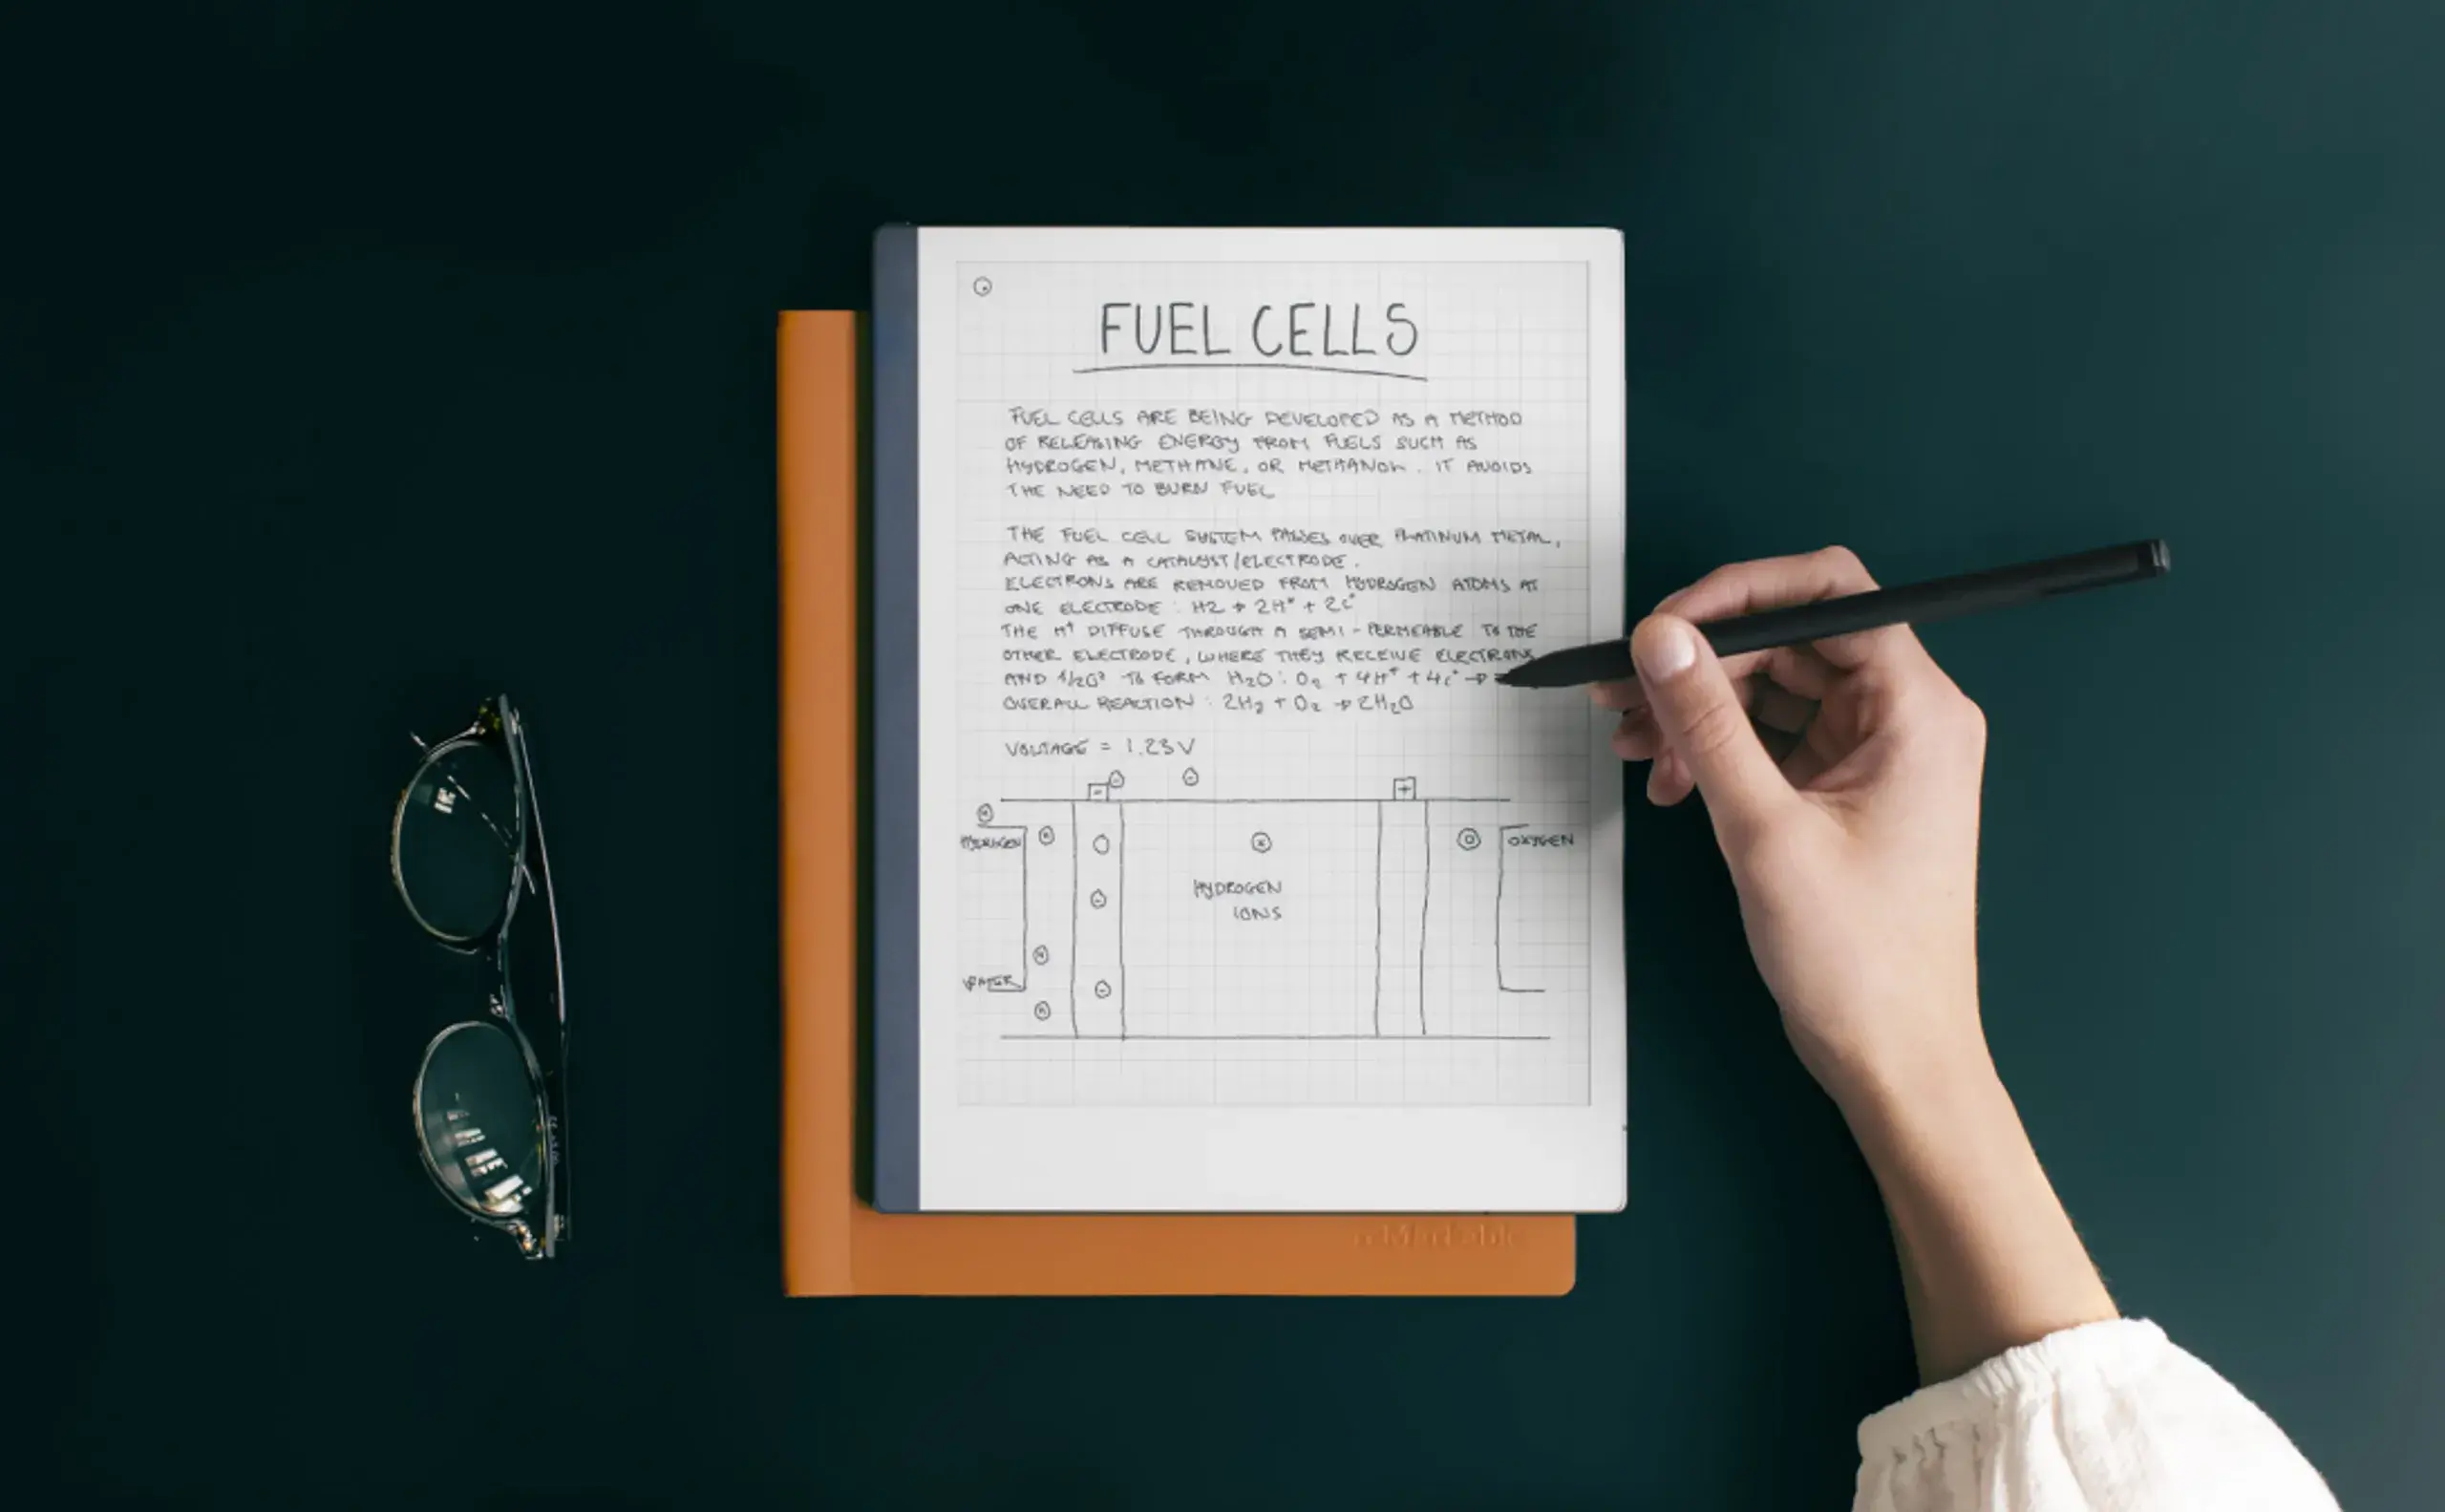 FUEL CELLS
FUEL CELLS ARE BEING DEVELOPED AS A METHOD
OF RELEASING ENERGY FROM FUELS SUCH AS
HYDROGEN, METHANE, OR METHANOL. IT AVOIDS
THE NEED TO BURN FUEL
THE FUEL CELL SYSTEM PASSES OVER PLATINUM METAL,
ACTING AS A CATALYST/ELECTRODE.
ELECTRONS ARE REMOVED FROM HYDROGEN ATOMS AT
ONE ELECTRODE : H2 → 2H⁺ + 2e⁻
THE H⁺ DIFFUSE THROUGH A SEMI-PERMEABLE TO THE
OTHER ELECTRODE, WHERE THEY RECEIVE ELECTRONS
AND 1/2O² TO FORM H₂O: O₂ + 4H⁺ + 4e⁻ →
OVERALL REACTION : 2H₂ + O₂ → 2H₂O
VOLTAGE = 1.23V
- +
HYDROGEN
OXYGEN
HYDROGEN
IONS
WATER
reMarkable